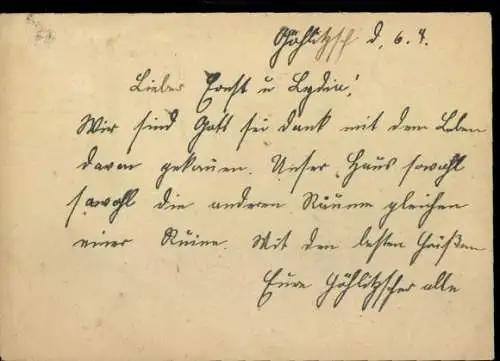 Göhlitzsch d. 6.4.
Lieber Ernst u Lydia!
Wir sind Gott sei dank mit dem Leben
davon gekauen. Unser Haus sowohl
sowohl die anderen Räume gleichen
einer Ruine. Mit den besten Grüßen
Eure Göhlitzscher alle